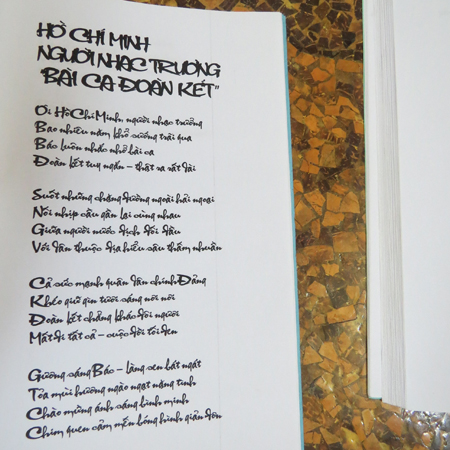 HỒ CHÍ MINH
NGƯỜI NHẠC TRƯỞNG
"BÀI CA ĐOÀN KẾT"
Ơi Hồ Chí Minh người nhạc trưởng
Bao nhiêu năm khổ sướng trải qua
Bác luôn nhắc nhở bài ca
Đoàn kết tuy ngắn - thật ra rất dài
Suốt những chặng đường ngoài hải ngoại
Nối nhịp cầu gần lại cùng nhau
Giữa người nước địch đối đầu
Với dân thuộc địa hiểu sâu thấm nhuần
Cả sức mạnh quân dân chính Đảng
Khéo giữ gìn tươi sáng nôi nôi
Đoàn kết chẳng khác đôi ngươi
Mất đi tất cả - cuộc đời tối đen
Gương sáng Bác - làng sen bát ngát
Tỏa mùi hương ngào ngạt nặng tình
Chào mừng ánh sáng bình minh
Chim quen cảm mến bóng hình giản đơn